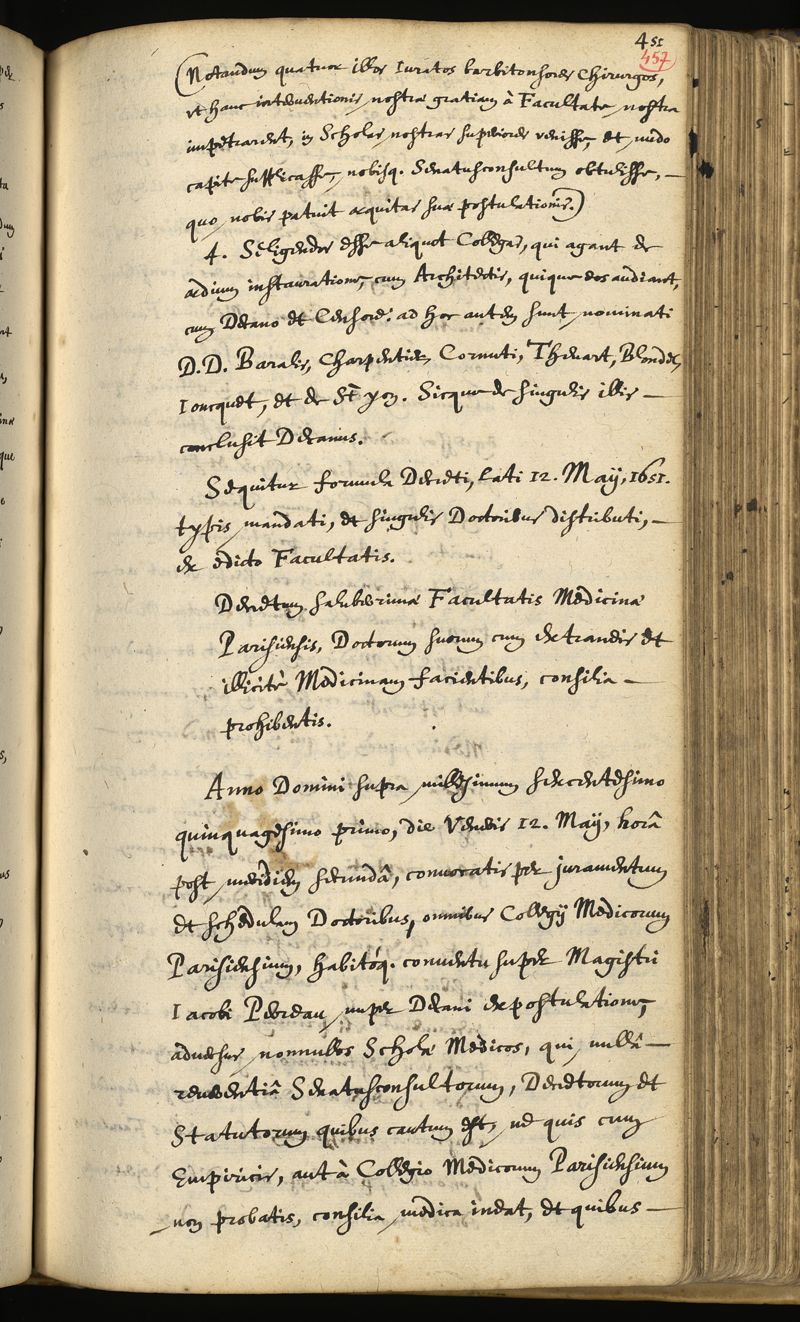 451
457
(Notandum quatuor illos Iuratos barbitonsores Chirurgos,
vt hanc interventionis nostræ gratiam à Facultate nostra
impetrarent, in Scholas nostras superiores venisse, et nudo
capite supplicasse, nobisq. Senatusconsultum obtulisse, —
quo nobis patuit æquitas suæ postulationis.)
4. Seligendos esse aliquot Collegas, qui agant de
ædium instauratione, cum Architectis, quique eos audiant,
cum Decano et Censore: ad hoc autem sunt nominati
D.D. Baralis, Charpentier, Cornuti, Thevart, Blondel,
Ioncquet, et de St yon. Sicque de singulis illis —
conclusit Decanus.
Sequitur formula Decreti, lati 12. Maÿ, 1651.
typis mandati, et singulis Doctoribus distributi, —
ex edicto Facultatis.
Decretum saluberrimæ Facultatis Medicinæ
Parisiensis, Doctorum suorum cum extraneis et
illicitè Medicinam facientibus, consilia —
prohibentis.
Anno Domini supra millesimum sexcentesimo
quinquagesimo primo, die Veneris 12. Maÿ, horâ
post meridiem secundâ, convocatis per juramentum
et schedulam Doctoribus, omnibus Collegÿ Medicorum
Parisiensium, habitóq. conventu super Magistri
Iacobi Perreau, nuper Decani expostulatione,
adversus nonnullos Scholæ Medicos, qui nullâ —
reverentiâ Senatusconsultorum, Decretorum et
Statutorum quibus cautum est, ne quis cum
Empiricis, aut à Collegio Medicorum Parisiensium
non probatis, consilia medica ineat, et quibus —